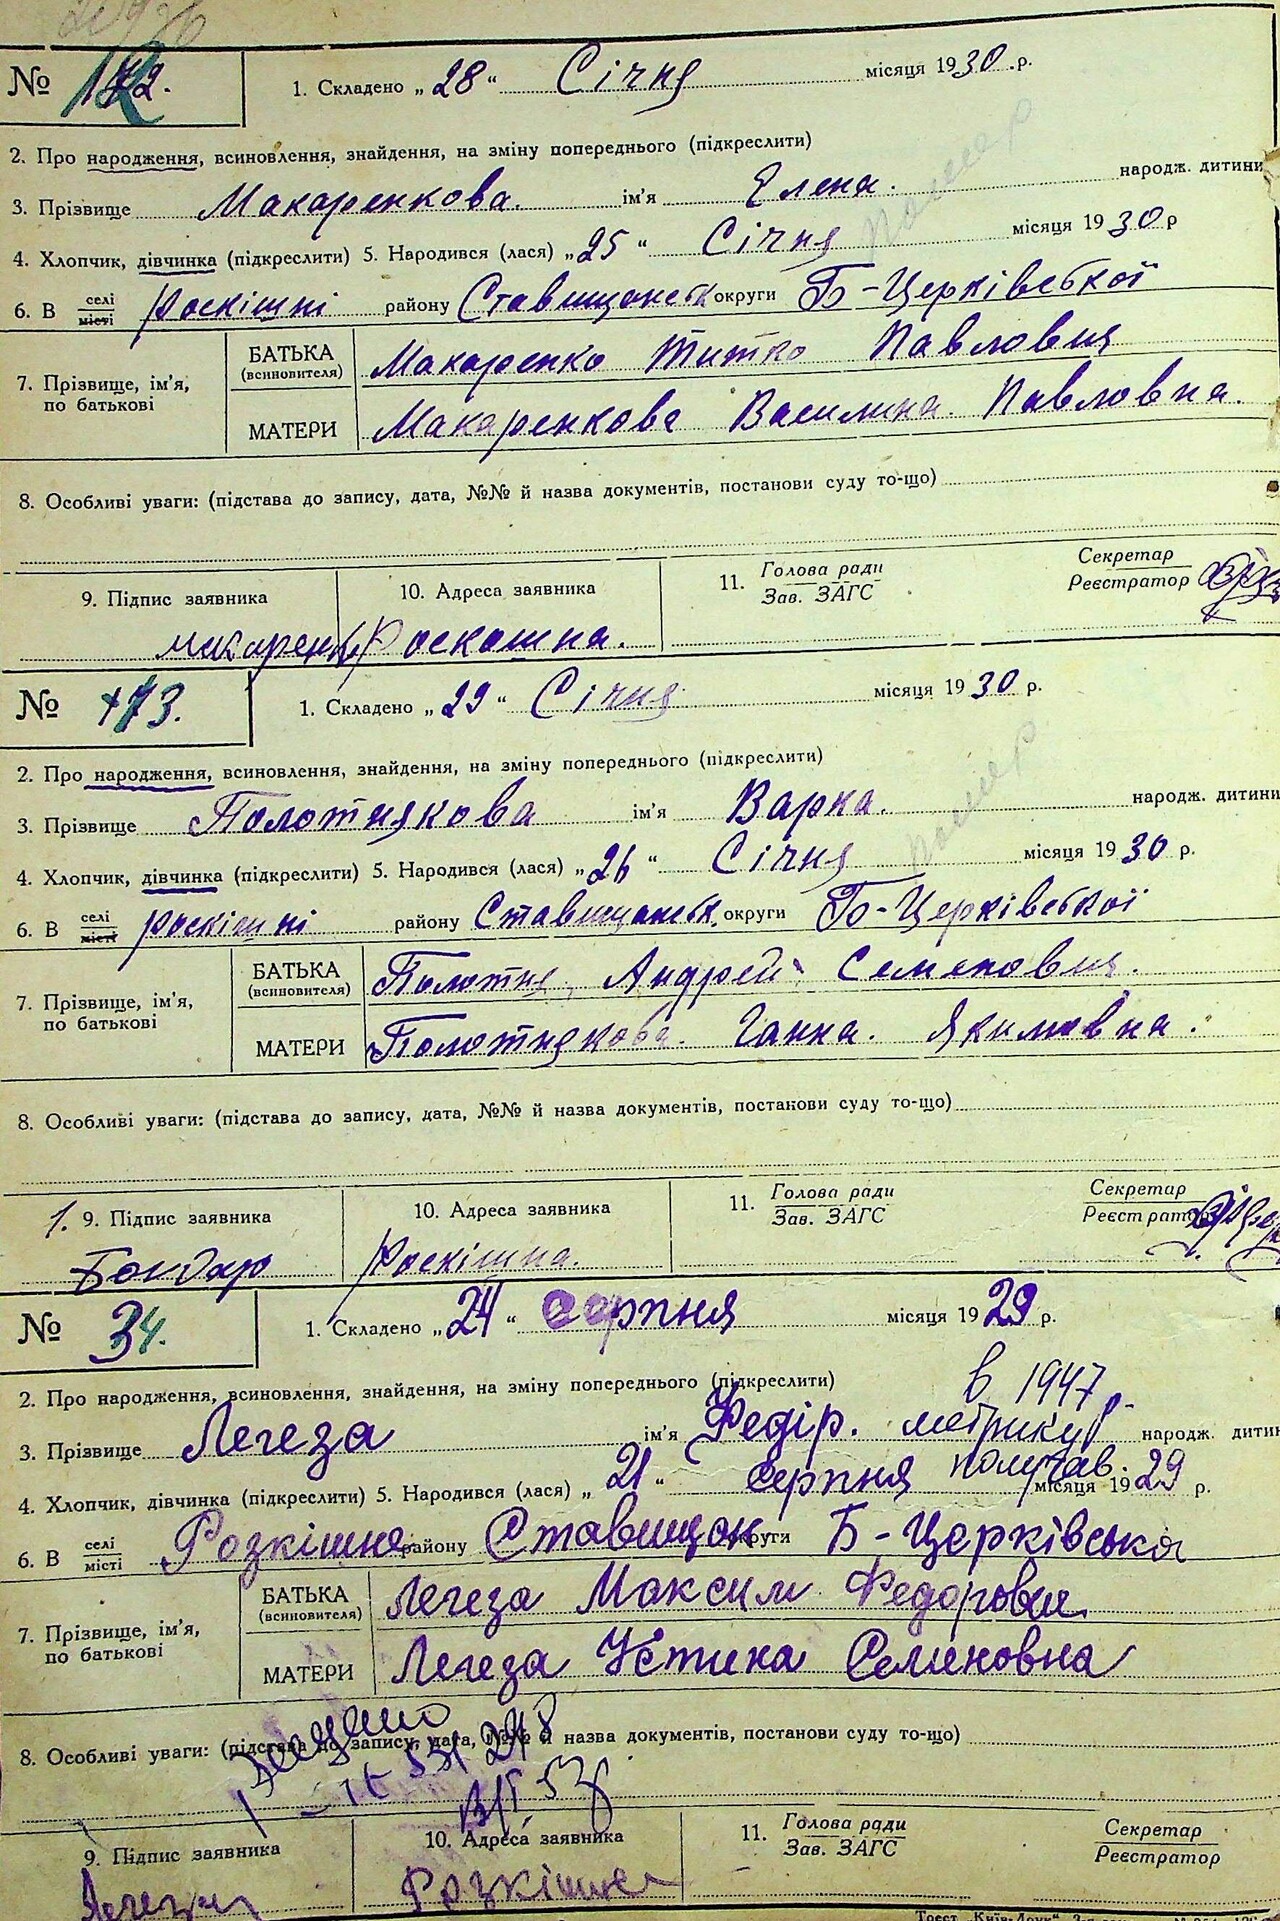 № 172. 1. Складено „28“ Січня місяця 1930 р.
2. Про народження, всиновлення, знайдення, на зміну попереднього (підкреслити)
помер
3. Прізвище Макаренкова. ім'я Елена. народж. дитини
4. Хлопчик, дівчинка (підкреслити) 5. Народився (лася) „25“ Січня місяця 1930 р
6. В селі/місті Роскішні району Ставищанськ округи Б-Церківської
7. Прізвище, ім'я, по батькові
БАТЬКА (всиновителя) Макаренко Титко Павловия
МАТЕРИ Макаренкова Василина Павловна.
8. Особливі уваги: (підстава до запису, дата, №№ й назва документів, постанови суду то-що)
9. Підпис заявника 10. Адреса заявника 11. Голова ради Зав. ЗАГС Секретар Реєстратор
Макаренко Роскошна.
№ 173. 1. Складено „29“ Січня місяця 1930 р.
2. Про народження, всиновлення, знайдення, на зміну попереднього (підкреслити)
помер
3. Прізвище Полотнякова ім'я Варка. народж. дитини
4. Хлопчик, дівчинка (підкреслити) 5. Народився (лася) „26“ Січня місяця 1930 р.
6. В селі/місті Роскішні району Ставищанськ. округи Б-Церківської
7. Прізвище, ім'я, по батькові
БАТЬКА (всиновителя) Полотня Андрей Семеновия.
МАТЕРИ Полотнякова Ганна. Якимовна.
8. Особливі уваги: (підстава до запису, дата, №№ й назва документів, постанови суду то-що)
1. 9. Підпис заявника 10. Адреса заявника 11. Голова ради Зав. ЗАГС Секретар Реєстратор
Бондар Роскішна.
№ 34. 1. Складено „24“ серпня місяця 1929 р.
2. Про народження, всиновлення, знайдення, на зміну попереднього (підкреслити)
в 1947 р. метрику получав.
3. Прізвище Легеза ім'я Федір. народж. дитин
4. Хлопчик, дівчинка (підкреслити) 5. Народився (лася) „21“ серпня місяця 1929 р.
6. В селі/місті Розкішне району Ставищан округи Б-Церківська
7. Прізвище, ім'я, по батькові
БАТЬКА (всиновителя) Легеза Максим Федорович
МАТЕРИ Легеза Устина Семеновна
8. Особливі уваги: (підстава до запису, дата, №№ й назва документів, постанови суду то-що)
9. Підпис заявника 10. Адреса заявника 11. Голова ради Зав. ЗАГС Секретар Реєстратор
Легеза Розкішне
Трест „Київ-Друк“